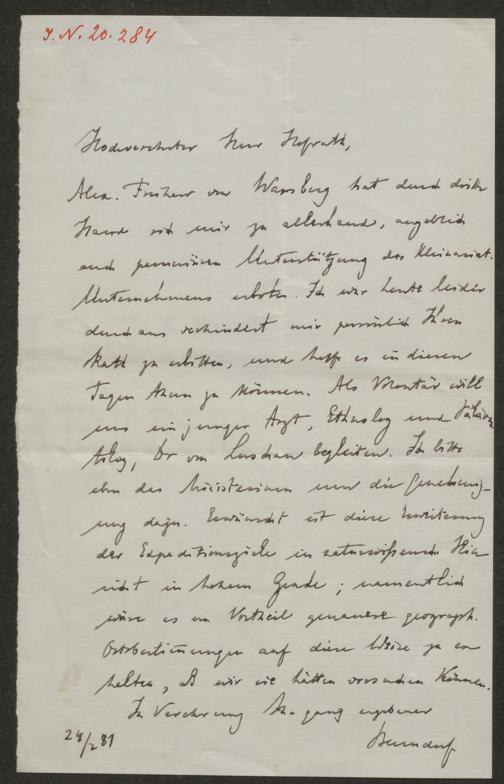 J. N. 20.284
Hochverehrter Herr Hofrath,
Alex. Freiherr von Warsberg hat durch dritte
Hand sich mir zu allerhand, angeblich
auch pecuniären Unterstützung des kleinasiat.
Unternehmens erboten. Ich war heute leider
durchaus verhindert mir persönlich Ihren
Rath zu erbitten, und hoffe es in diesen
Tagen thun zu können. Als Volontär will
uns ein junger Arzt, Ethnolog und
Dr von Luschan begleiten. Ich bitte
eben das Ministerium um die Genehmig-
ung dazu. Erwünscht ist diese Erweiterung
der Expeditionsziele in naturwissensch. Hin
sicht in hohem Grade; namentlich
wäre es ein Vortheil genauere geograph.
Ortsbestimmungen auf diese Weise zu er
halten, als wir sie hätten versuchen können.
In Verehrung Ihr ganz ergebener
24/2 81
Benndorf